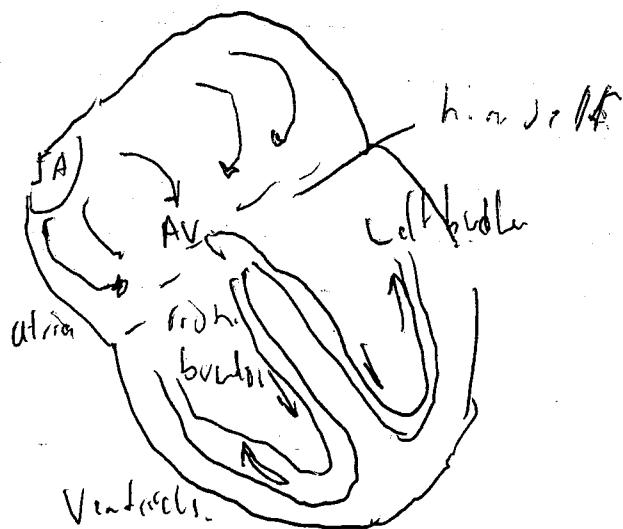 SA
AV
Left bundle
atria
right
bundle
Ventricls.